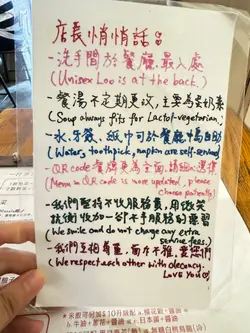 店長悄悄話:
-洗手間於餐廳最入處
(Unisex Loo is at the back.)
-餐湯不定期更改,主要為蛋奶素
(Soup always fits for Lactol-vegetarian.)
-水、牙簽、紙巾可於餐廳
自助
(Waters, toothpick, napton are self-serviced)
-QR code餐牌更為全面,請細心選擇
(Menu in QR code is more updated, please
Choose patiently)
-我們堅持不收服務費,用微笑
(We smile and do not charge any extra
service fees.)
-我們互相尊重,
(We respect each other with decency.
Love you